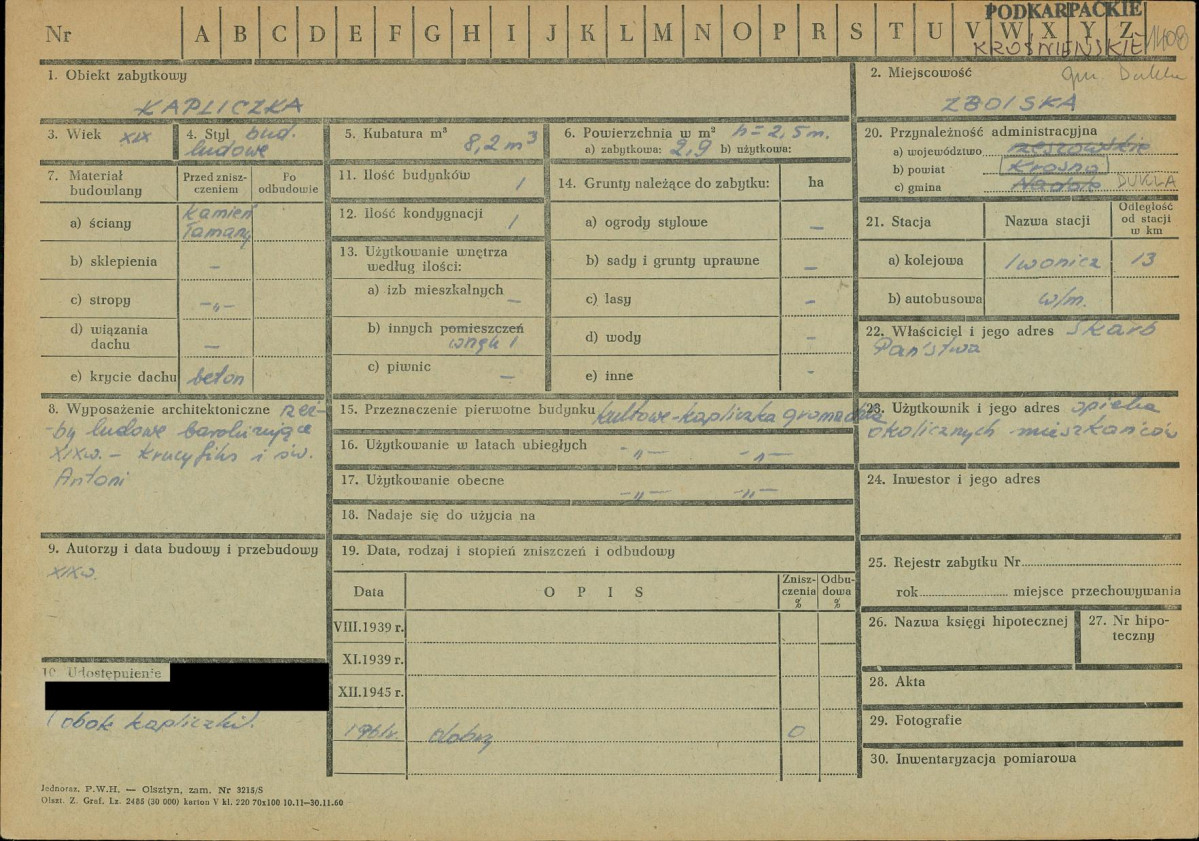 PODKARPACKIE
Nr A B C D E F G H I J K L M N O P R S T U V W X Y Z 1408
KROŚNIEŃSKIE
1. Obiekt zabytkowy
KAPLICZKA
2. Miejscowość gm. Dukla
ZBOISKA
3. Wiek XIX
4. Styl bud. ludowe
5. Kubatura m³ 8,2 m³
6. Powierzchnia w m² h = 2,5 m.
a) zabytkowa: 2,9 b) użytkowa:
20. Przynależność administracyjna
a) województwo rzeszowskie
b) powiat Krosno
c) gmina Nadole DUKLA
7. Materiał budowlany
Przed zniszczeniem
Po odbudowie
a) ściany kamień łamany
b) sklepienia —
c) stropy —„—
d) wiązania dachu —
e) krycie dachu beton
11. Ilość budynków 1
12. Ilość kondygnacji 1
13. Użytkowanie wnętrza według ilości:
a) izb mieszkalnych —
b) innych pomieszczeń wnęk 1
c) piwnic —
14. Grunty należące do zabytku: ha
a) ogrody stylowe —
b) sady i grunty uprawne —
c) lasy -
d) wody -
e) inne -
21. Stacja Nazwa stacji Odległość od stacji w km
a) kolejowa Iwonicz 13
b) autobusowa w/m.
22. Właściciel i jego adres Skarb
Państwa
8. Wyposażenie architektoniczne rzeź-
-by ludowe barokizujące
XIXw. - krucyfiks i św.
Antoni
15. Przeznaczenie pierwotne budynku kultowe-kapliczka gromadzka
16. Użytkowanie w latach ubiegłych -„- -„-
17. Użytkowanie obecne -„- -„-
18. Nadaje się do użycia na
23. Użytkownik i jego adres opieka
okolicznych mieszkańców
24. Inwestor i jego adres
9. Autorzy i data budowy i przebudowy
XIXw.
19. Data, rodzaj i stopień zniszczeń i odbudowy
Data OPIS Zniszczenia % Odbudowa %
VIII.1939 r.
XI.1939 r.
XII.1945 r.
1961r. dobry 0
25. Rejestr zabytku Nr
rok miejsce przechowywania
26. Nazwa księgi hipotecznej
27. Nr hipoteczny
28. Akta
29. Fotografie
30. Inwentaryzacja pomiarowa
10. Udostępnienie
(obok kapliczki).
Jednoraz. P.W.H. — Olsztyn, zam. Nr 3215/S
Olszt. Z. Graf. Lz. 2485 (30 000) karton V kl. 220 70x100 10.11—30.11.60